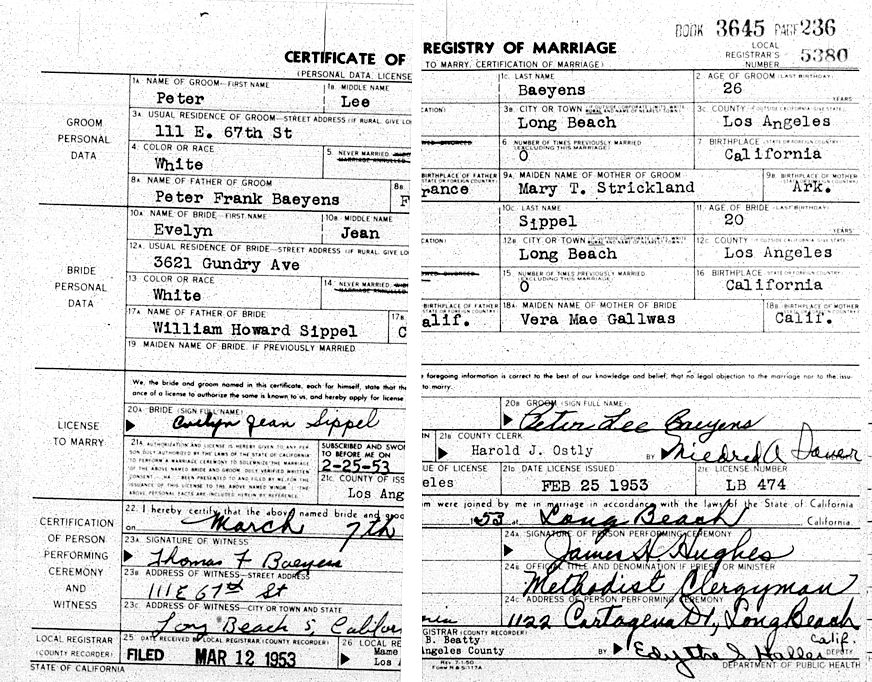 BOOK 3645 PAGE 236
CERTIFICATE OF REGISTRY OF MARRIAGE
LOCAL REGISTRAR'S NUMBER 5380
(PERSONAL DATA, LICENSE TO MARRY, CERTIFICATION OF MARRIAGE)
GROOM PERSONAL DATA
1A NAME OF GROOM—FIRST NAME 1B MIDDLE NAME 1C. LAST NAME 2. AGE OF GROOM (LAST BIRTHDAY)
Peter Lee Baeyens 26 YEARS
3A. USUAL RESIDENCE OF GROOM—STREET ADDRESS (IF RURAL, GIVE LO 3B. CITY OR TOWN 3C. COUNTY
111 E. 67th St Long Beach Los Angeles
4. COLOR OR RACE 5. NEVER MARRIED 6 NUMBER OF TIMES PREVIOUSLY MARRIED (EXCLUDING THIS MARRIAGE) 7 BIRTHPLACE (STATE OR FOREIGN COUNTRY)
White 0 California
8A NAME OF FATHER OF GROOM 8B. BIRTHPLACE OF FATHER (STATE OR FOREIGN COUNTRY) 9A. MAIDEN NAME OF MOTHER OF GROOM 9B. BIRTHPLACE OF MOTHER
Peter Frank Baeyens F rance Mary T. Strickland Ark.
BRIDE PERSONAL DATA
10A NAME OF BRIDE—FIRST NAME 10B MIDDLE NAME 10C. LAST NAME 11. AGE OF BRIDE (LAST BIRTHDAY)
Evelyn Jean Sippel 20 YEARS
12A. USUAL RESIDENCE OF BRIDE—STREET ADDRESS (IF RURAL, GIVE LO 12B CITY OR TOWN 12C COUNTY
3621 Gundry Ave Long Beach Los Angeles
13 COLOR OR RACE 14. NEVER MARRIED 15. NUMBER OF TIMES PREVIOUSLY MARRIED (EXCLUDING THIS MARRIAGE) 16 BIRTHPLACE (STATE OR FOREIGN COUNTRY)
White 0 California
17A NAME OF FATHER OF BRIDE 17B BIRTHPLACE OF FATHER (STATE OR FOREIGN COUNTRY) 18A. MAIDEN NAME OF MOTHER OF BRIDE 18B BIRTHPLACE OF MOTHER (STATE OR FOREIGN COUNTRY)
William Howard Sippel C alif. Vera Mae Gallwas Calif.
19 MAIDEN NAME OF BRIDE, IF PREVIOUSLY MARRIED
LICENSE TO MARRY
We, the bride and groom named in this certificate, each for himself, state that the foregoing information is correct to the best of our knowledge and belief, that no legal objection to the marriage nor to the issu-
ance of a license to authorize the same is known to us, and hereby apply for license to marry.
20A BRIDE (SIGN FULL NAME) 20B GROOM (SIGN FULL NAME)
Evelyn Jean Sippel Peter Lee Baeyens
21A AUTHORIZATION AND LICENSE IS HEREBY GIVEN TO ANY PER-
SON DULY AUTHORIZED BY THE LAWS OF THE STATE OF CALIFORNIA
SUBSCRIBED AND SWO TO BEFORE ME ON 2-25-53
21B COUNTY CLERK
Harold J. Ostly BY Mildred A
21C. COUNTY OF ISSUE OF LICENSE 21D DATE LICENSE ISSUED 21E LICENSE NUMBER
Los Ang eles FEB 25 1953 LB 474
CERTIFICATION OF PERSON PERFORMING CEREMONY AND WITNESS
22. I hereby certify that the above named bride and groom were joined by me in marriage in accordance with the laws of the State of California
on March 7th 1953 at Long Beach California.
23A SIGNATURE OF WITNESS 24A SIGNATURE OF PERSON PERFORMING CEREMONY
Thomas F Baeyens James H Hughes
23B ADDRESS OF WITNESS—STREET ADDRESS 24B OFFICIAL TITLE AND DENOMINATION IF PRIEST OR MINISTER
111 E 67th St Methodist Clergyman
23C. ADDRESS OF WITNESS—CITY OR TOWN AND STATE 24C ADDRESS OF PERSON PERFORMING CEREMONY
Long Beach 5, Califor nia 1122 Cartagena St, Long Beach Calif.
LOCAL REGISTRAR (COUNTY RECORDER)
25 DATE RECEIVED BY LOCAL REGISTRAR (COUNTY RECORDER) 26 LOCAL REGISTRAR (COUNTY RECORDER)
FILED MAR 12 1953 Mame B. Beatty
Los Angeles County BY Edythe S. Haller DEPUTY
STATE OF CALIFORNIA
REV 7-1-50
FORM R & S-117A
DEPARTMENT OF PUBLIC HEALTH